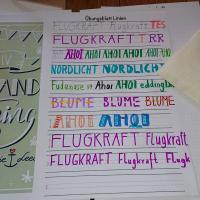 Übungsblatt Linien
FLUGKRAFT Flugkraft TES
FLUGKRAFT T RR
AHOI AHOI AHOI AHOI AHOI
NORDLICHT NORDLICHT
Ahoi AHOI edding
BLUME BLUME BLUME
AHOI AHOI
FLUGKRAFT Flugkraft
FLUGKRAFT Flugkraft Flugk
AND